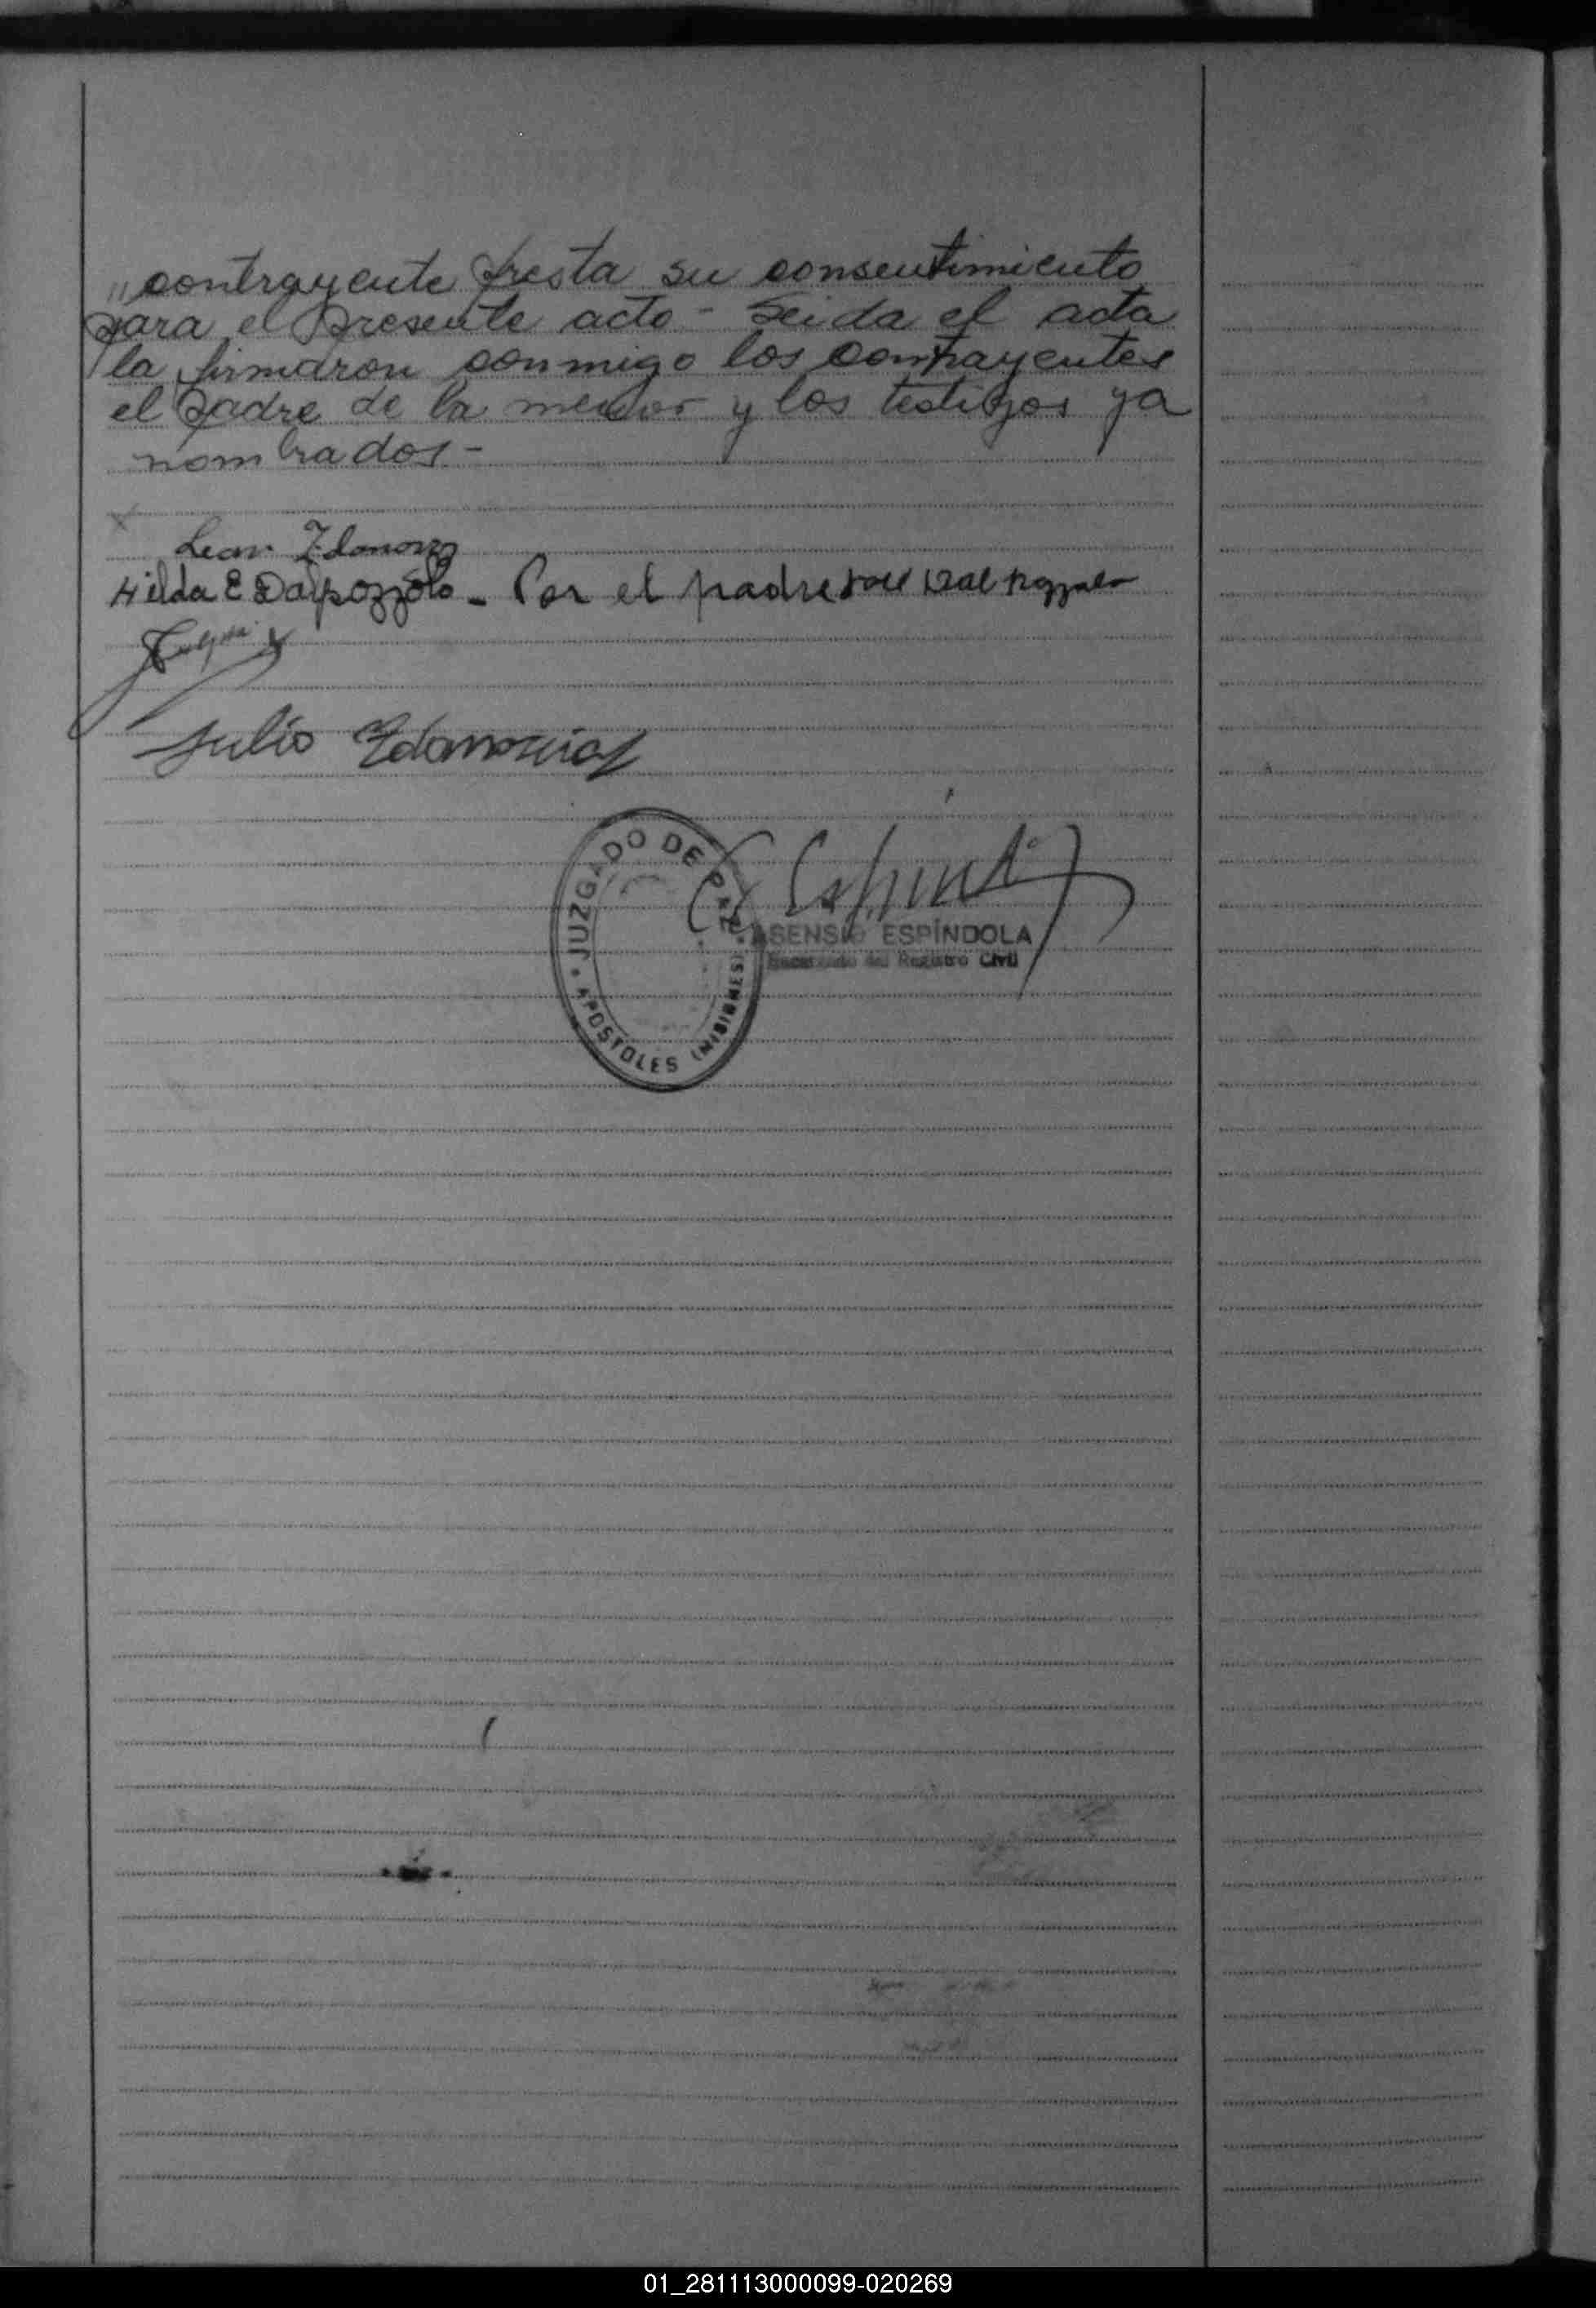 "contrayente presta su consentimiento
para el presente acto - Leida el acta
la firmaron conmigo los contrayentes
el padre de la menor y los testigos ya
nombrados -
Leon
Hilda E Dalpozzolo - Por el padre Dal Pozzolo
Julio
JUZGADO DE PAZ
APOSTOLES (MISIONES)
ASENSIO ESPÍNDOLA
Encargado del Registro Civil
01_281113000099-020269